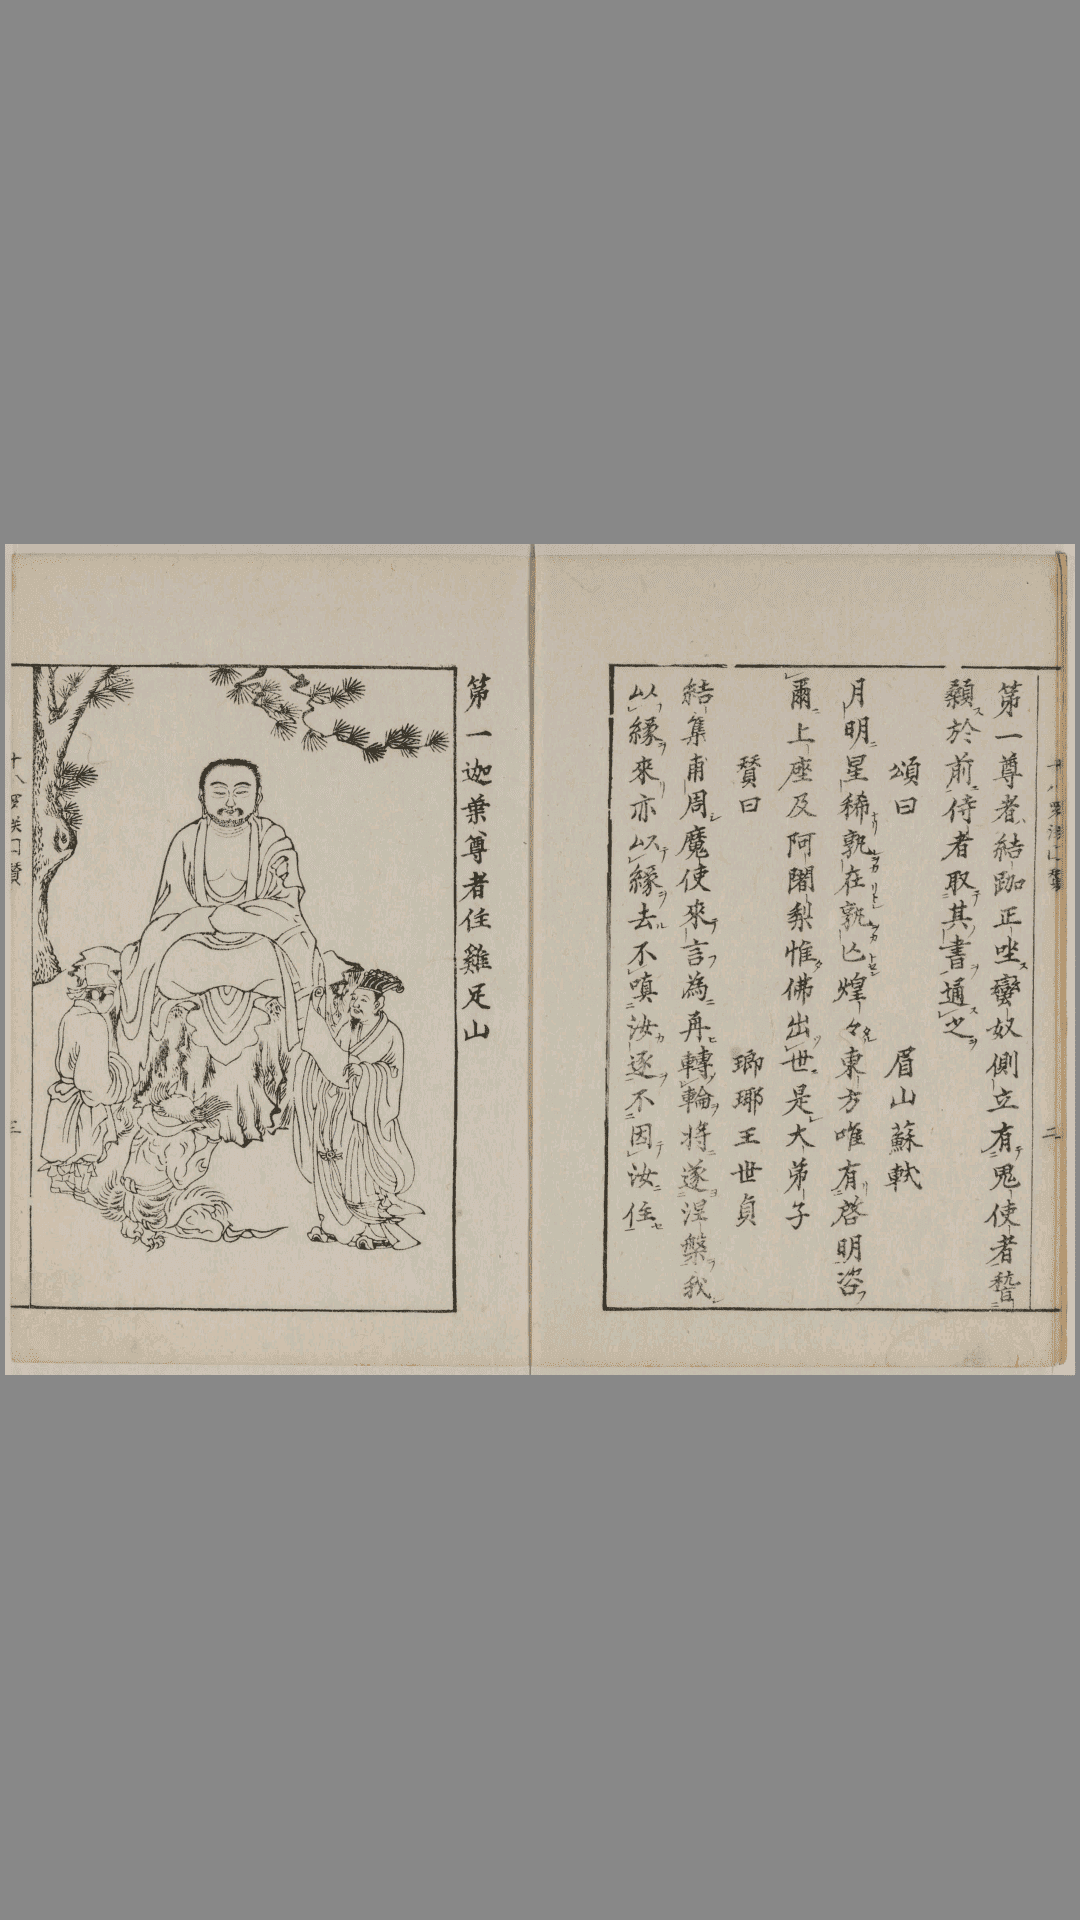 第一尊者結跏正坐蠻奴側立有鬼使者稽
顙於前侍者取其書通之
頌曰　眉山蘇軾
月明星稀孰在孰亾煌々東方唯有啓明咨
爾上座及阿闍梨惟佛出世是大弟子
賛曰　瑯琊王世貞
結集甫周魔使來言為再轉輪將遂涅槃我
以緣來亦以緣去不嗔汝逐不因汝住
第一迦葉尊者住雞足山
十八羅漢圖贊
三